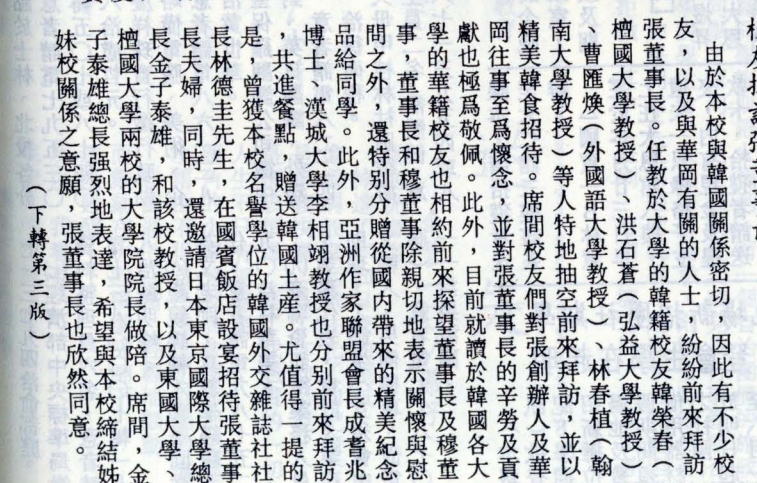 由於本校與韓國關係密切，因此有不少校
友，以及與華岡有關的人士，紛紛前來拜訪
張董事長。任教於大學的韓籍校友韓榮春（
檀國大學教授）、洪石蒼（弘益大學教授）
、曹匯煥（外國語大學教授）、林春植（翰
南大學教授）等人特地抽空前來拜訪，並以
精美韓食招待。席間校友們對張創辦人及華
岡往事至爲懷念，並對張董事長的辛勞及貢
獻也極爲敬佩。此外，目前就讀於韓國各大
學的華籍校友也相約前來探望董事長及穆董
事，董事長和穆董事除親切地表示關懷與慰
問之外，還特別分贈從國内帶來的精美紀念
品給同學。此外，亞洲作家聯盟會長成耆兆
博士、漢城大學李相翊教授也分別前來拜訪
，共進餐點，贈送韓國土産。尤值得一提的
是，曾獲本校名譽學位的韓國外交雜誌社社
長林德圭先生，在國賓飯店設宴招待張董事
長夫婦，同時，還邀請日本東京國際大學總
長金子泰雄，和該校教授，以及東國大學、
檀國大學兩校的大學院院長做陪。席間，金
子泰雄總長强烈地表達，希望與本校締結姊
妹校關係之意願，張董事長也欣然同意。
（下轉第三版）